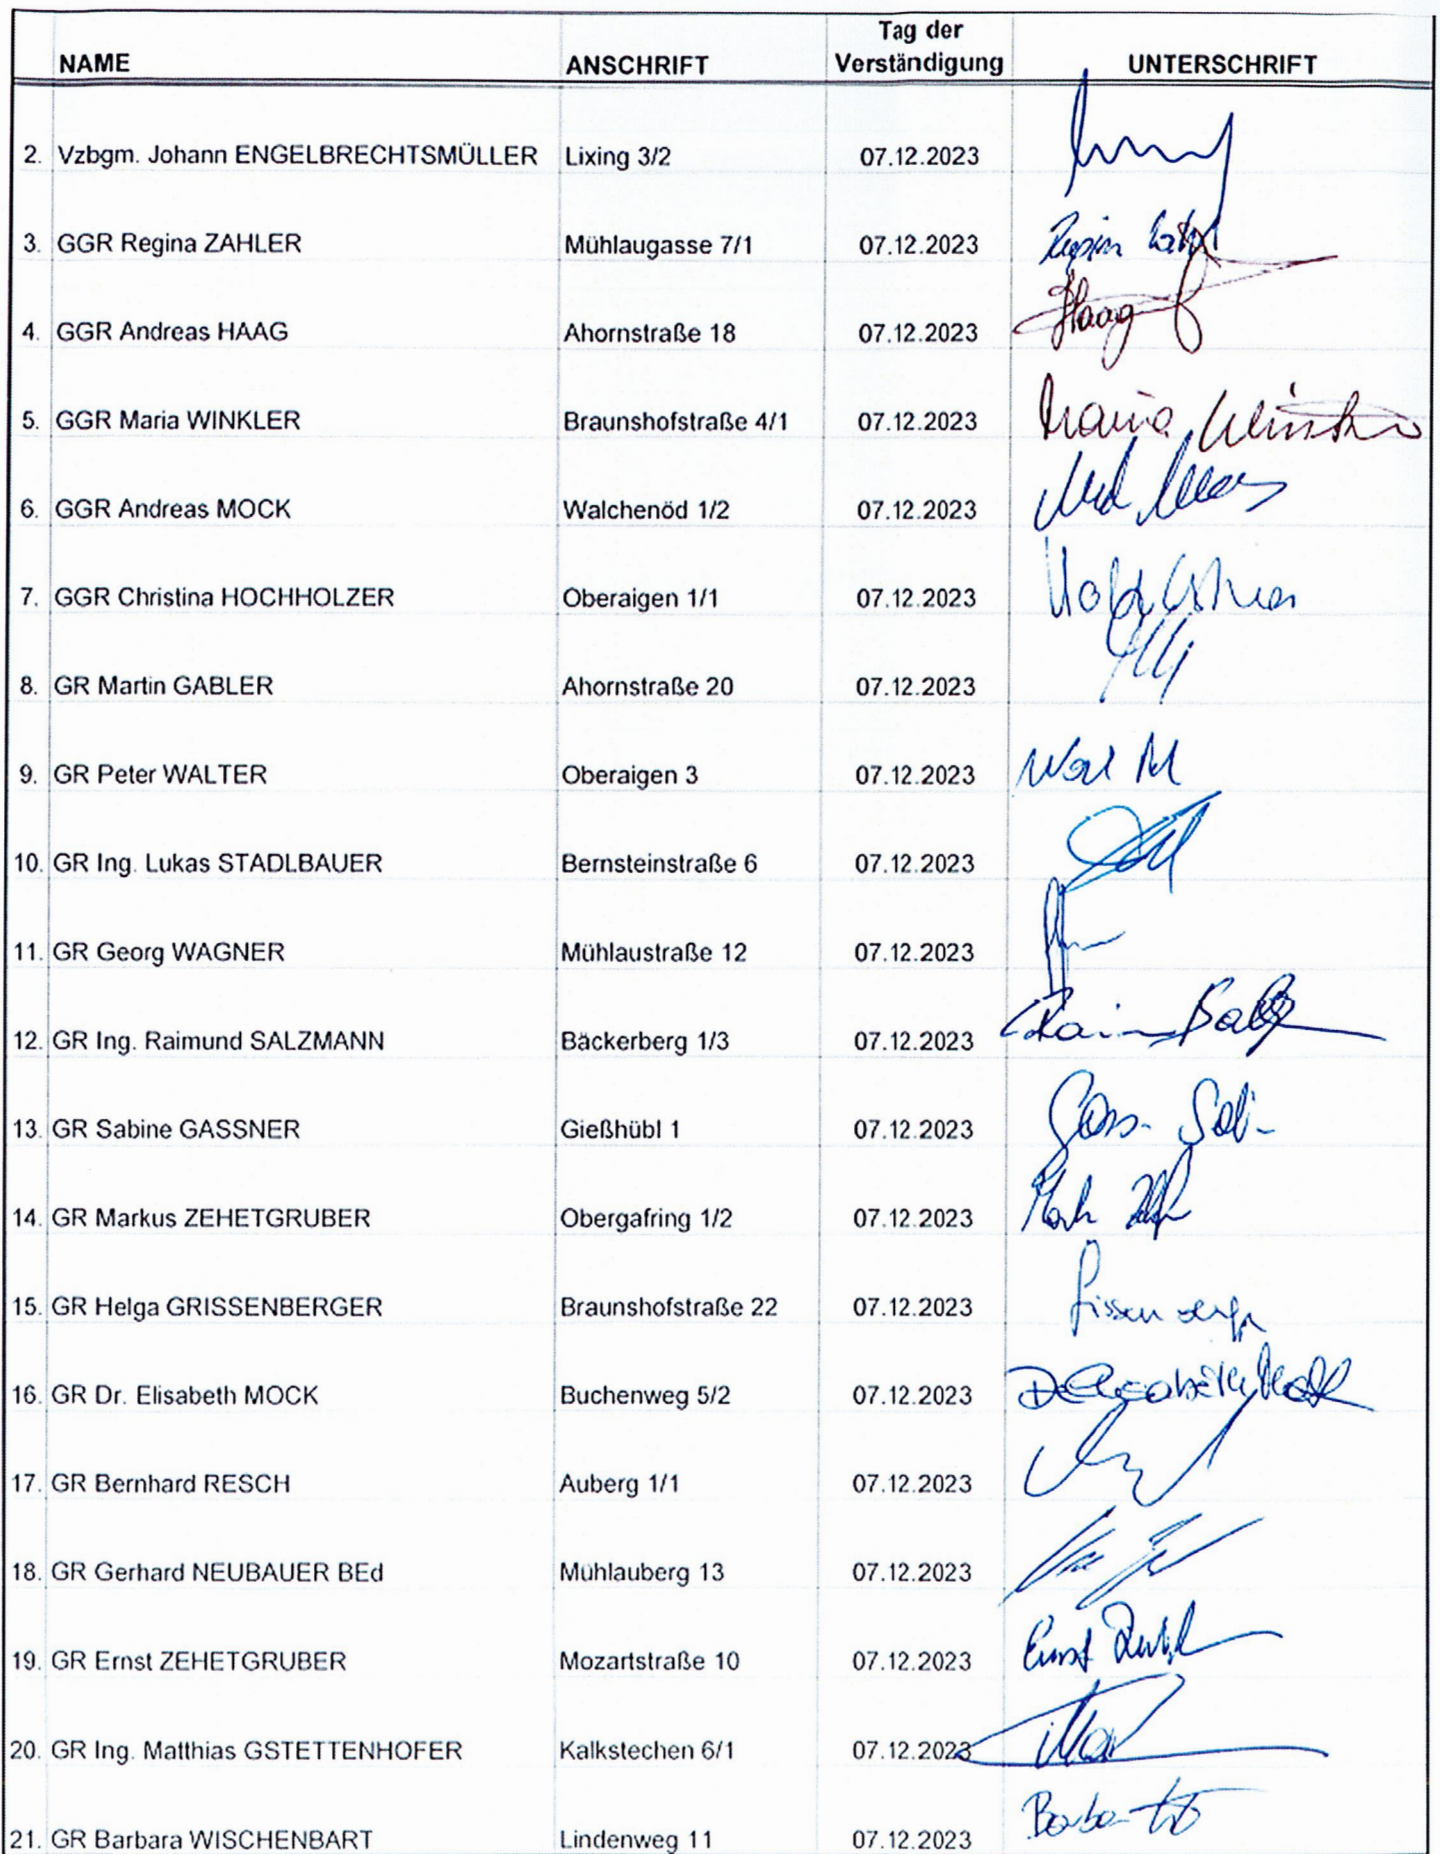 NAME ANSCHRIFT Tag der Verständigung UNTERSCHRIFT
2. Vzbgm. Johann ENGELBRECHTSMÜLLER Lixing 3/2 07.12.2023
3. GGR Regina ZAHLER Mühlaugasse 7/1 07.12.2023
4. GGR Andreas HAAG Ahornstraße 18 07.12.2023 Haag
5. GGR Maria WINKLER Braunshofstraße 4/1 07.12.2023 Maria Winkler
6. GGR Andreas MOCK Walchenöd 1/2 07.12.2023
7. GGR Christina HOCHHOLZER Oberaigen 1/1 07.12.2023
8. GR Martin GABLER Ahornstraße 20 07.12.2023
9. GR Peter WALTER Oberaigen 3 07.12.2023
10. GR Ing. Lukas STADLBAUER Bernsteinstraße 6 07.12.2023
11. GR Georg WAGNER Mühlaustraße 12 07.12.2023
12. GR Ing. Raimund SALZMANN Bäckerberg 1/3 07.12.2023
13. GR Sabine GASSNER Gießhübl 1 07.12.2023
14. GR Markus ZEHETGRUBER Obergafring 1/2 07.12.2023
15. GR Helga GRISSENBERGER Braunshofstraße 22 07.12.2023
16. GR Dr. Elisabeth MOCK Buchenweg 5/2 07.12.2023 Dr Elisabeth Mock
17. GR Bernhard RESCH Auberg 1/1 07.12.2023
18. GR Gerhard NEUBAUER BEd Mühlauberg 13 07.12.2023
19. GR Ernst ZEHETGRUBER Mozartstraße 10 07.12.2023 Ernst
20. GR Ing. Matthias GSTETTENHOFER Kalkstechen 6/1 07.12.2023
21. GR Barbara WISCHENBART Lindenweg 11 07.12.2023